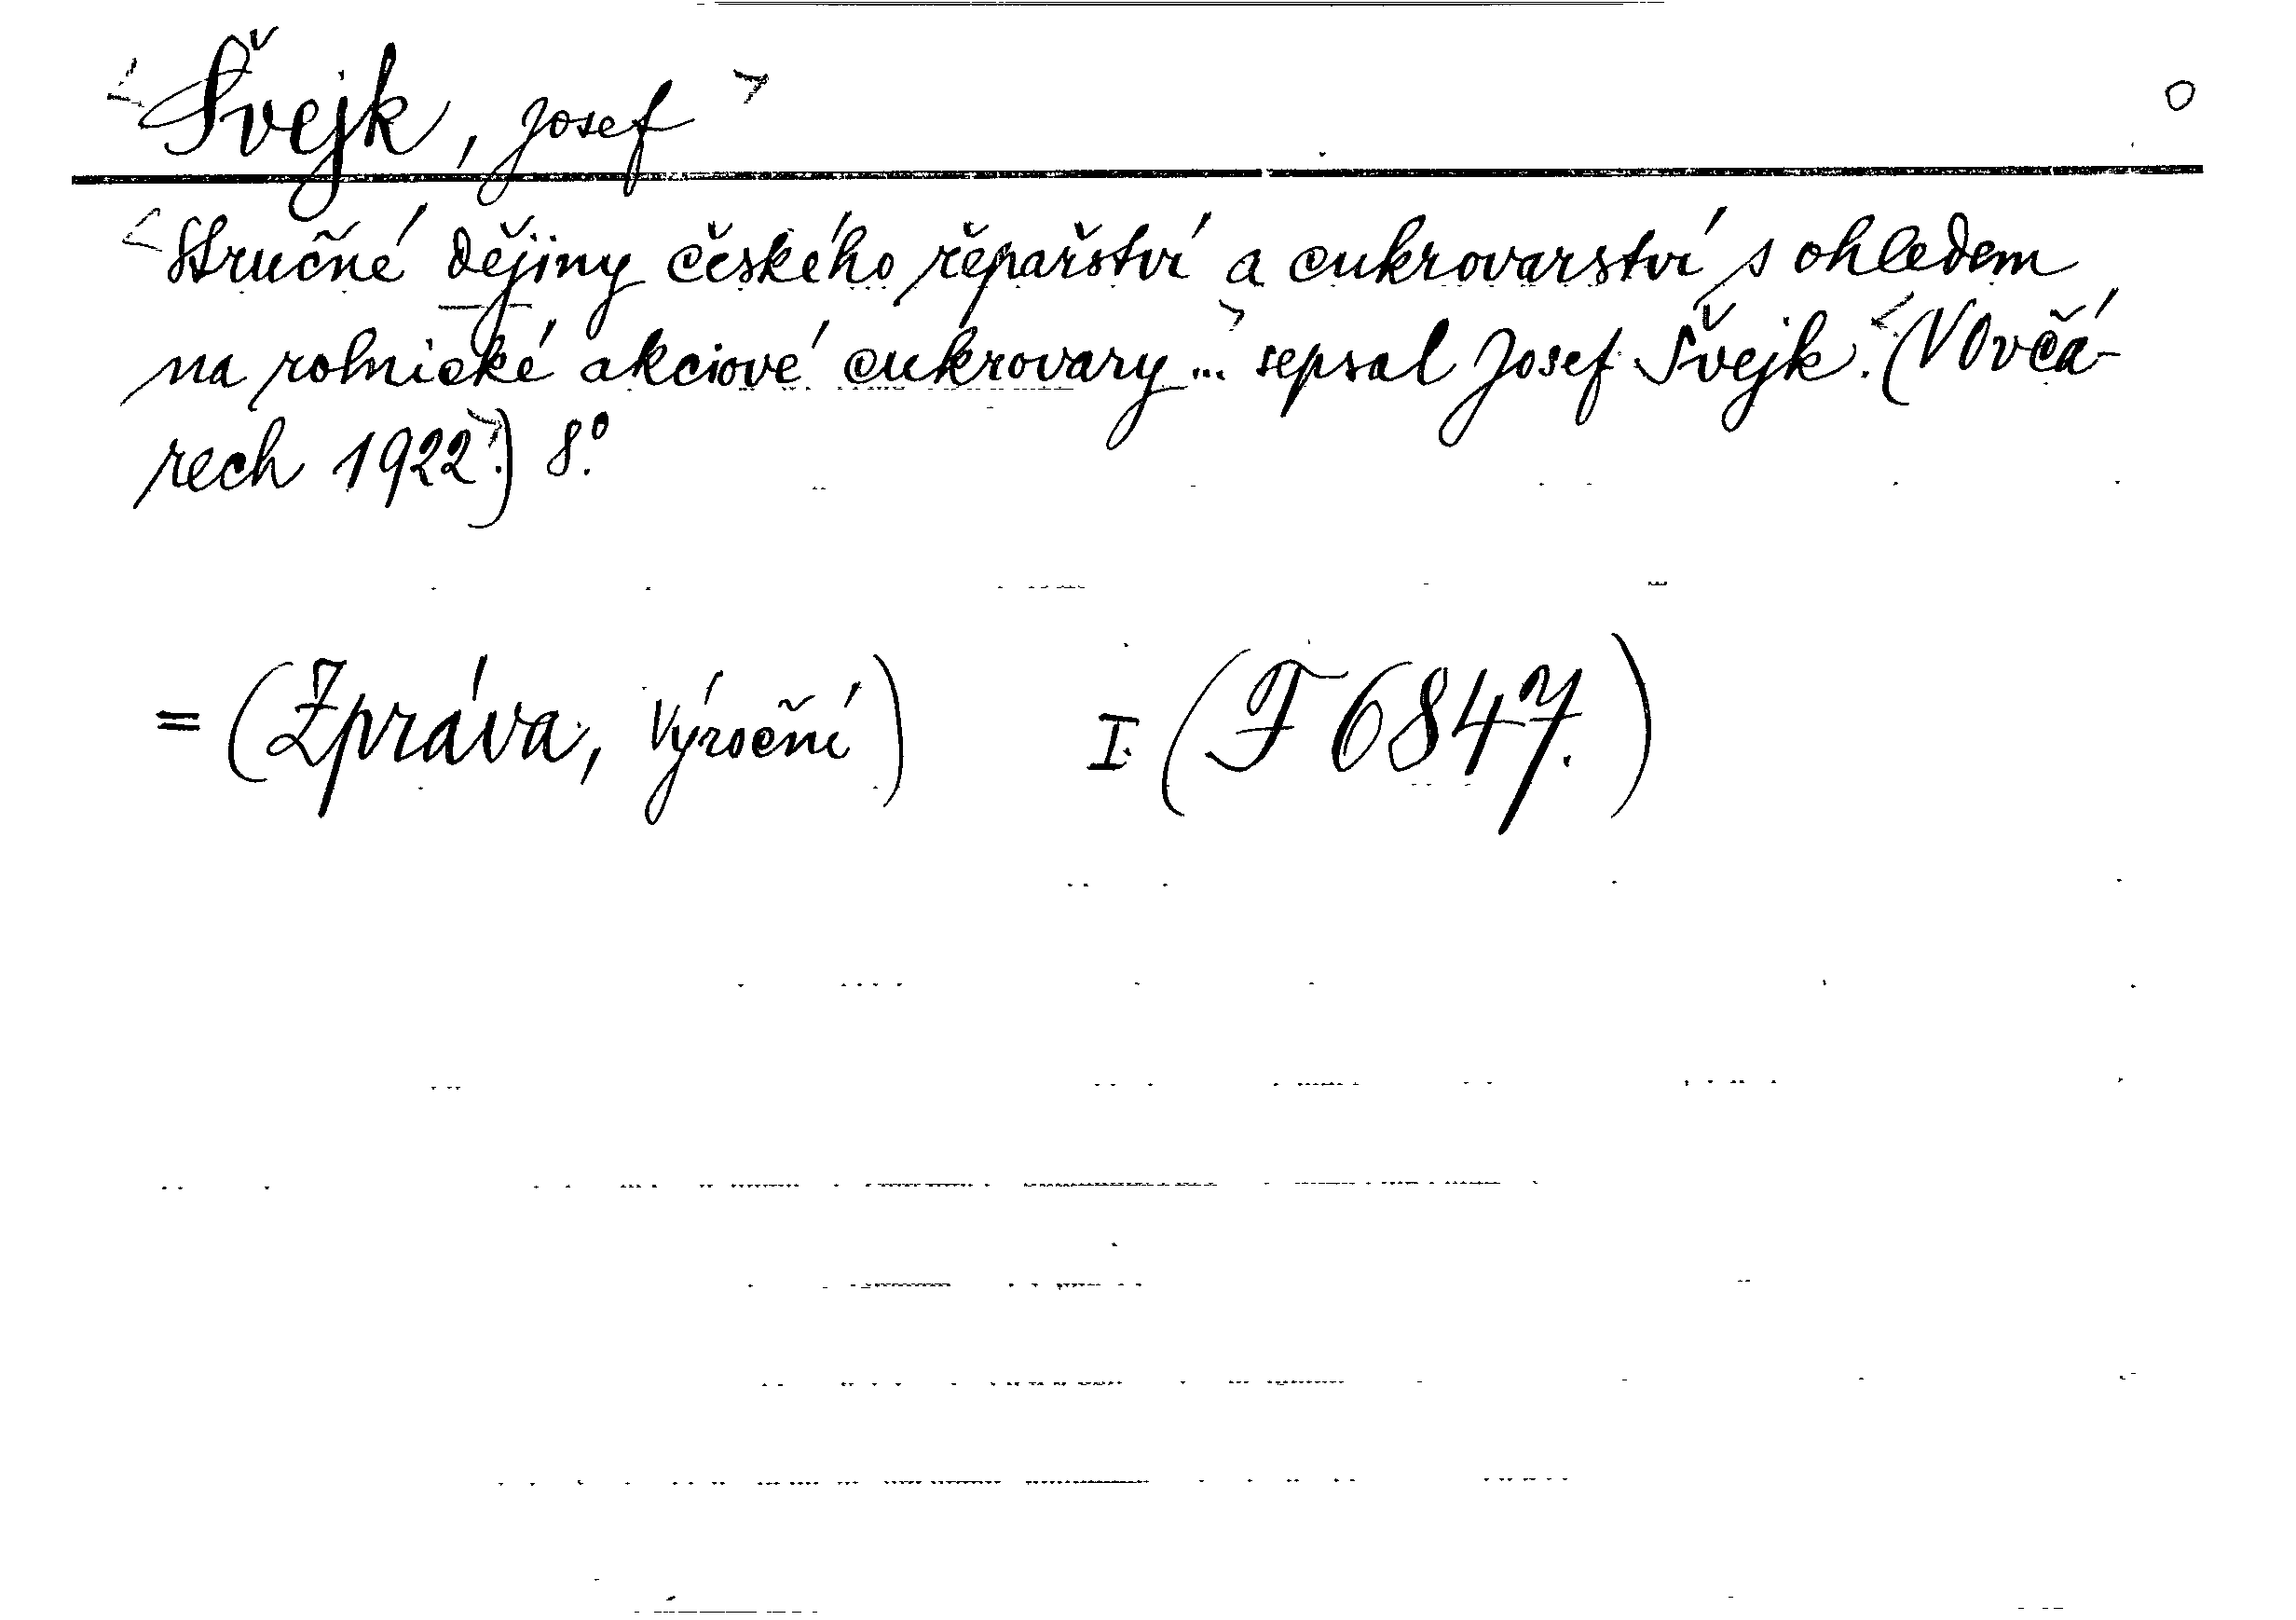 <Švejk, Josef> O
<Stručné dějiny českého řepařství a cukrovarství s ohledem
na rolnické akciové cukrovary...> sepsal Josef Švejk.<(V Ovčá-
rech 1922>.) 8°.
= (Zpráva, Výroční) I. (F 6847.)